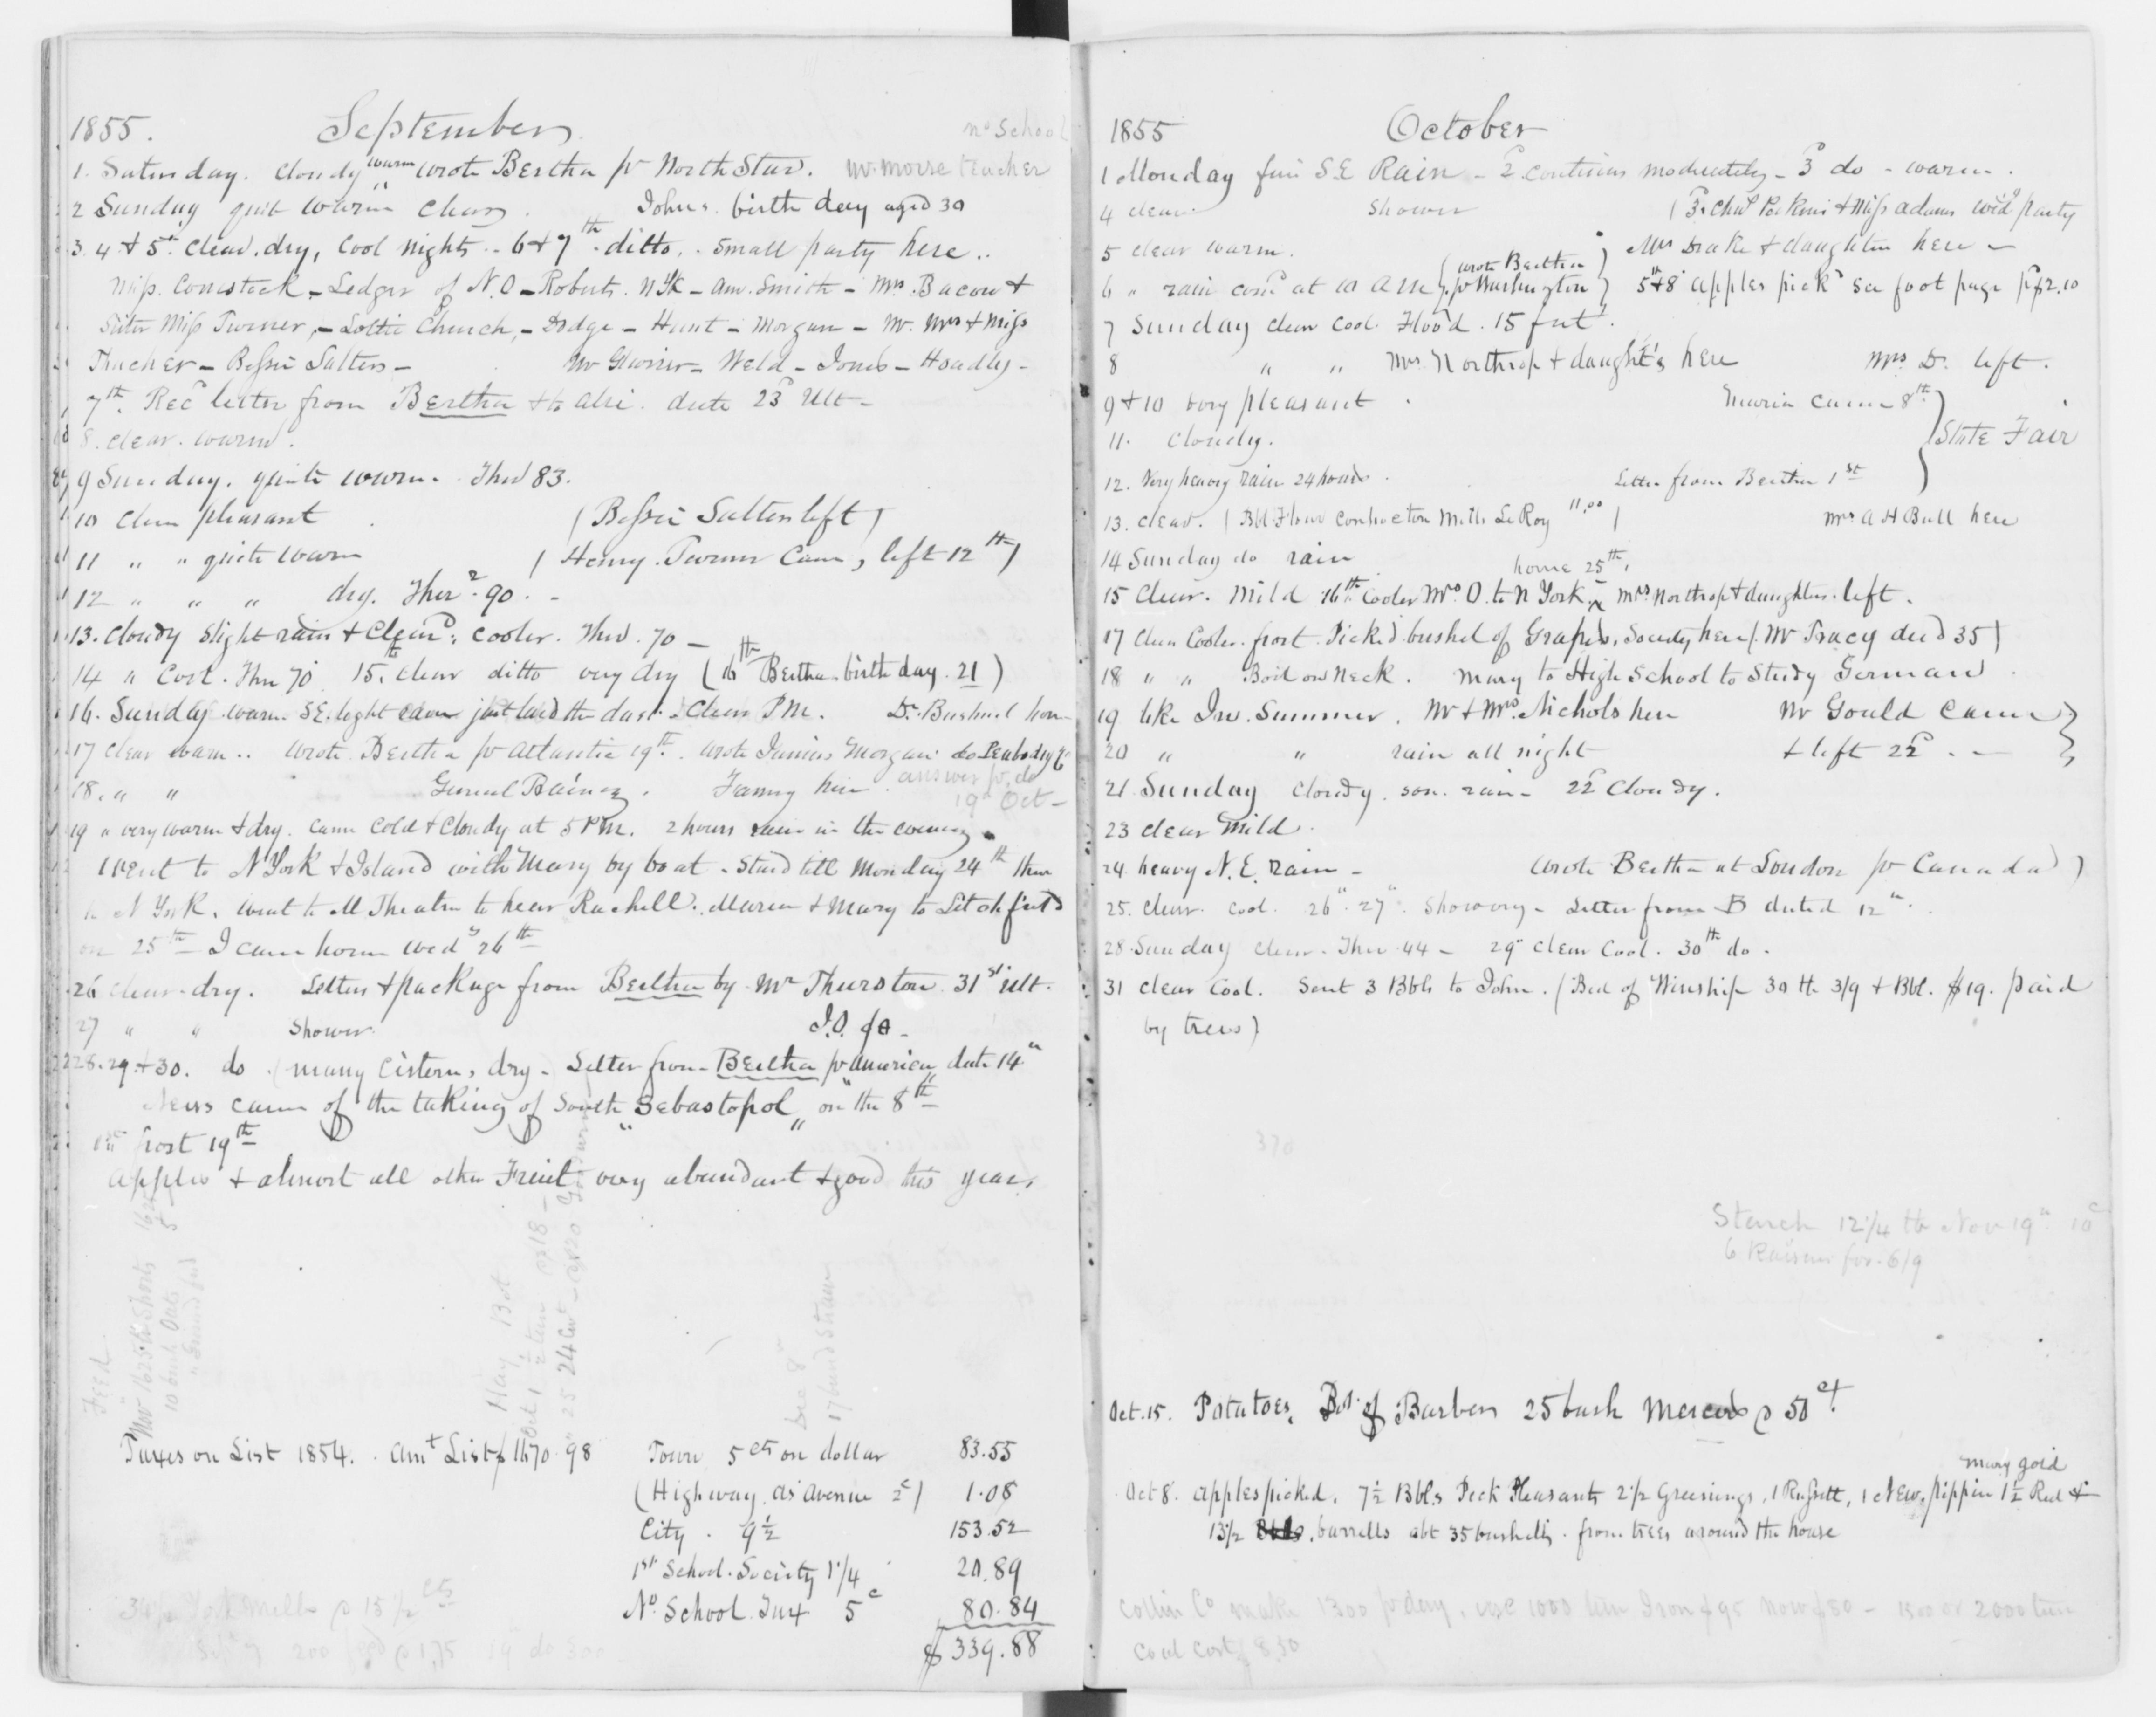 1855. September No School
1. Saturday. Cloudy warm wrote Bertha pr North Star. Mr. Morse teacher
2 Sunday quite warm clear. Johns. birth day aged 30
3. 4 & 5th clear. dry, Cool nights. 6 & 7th ditto. Small party here..
Miss Comstock - Ledgar of N.O - Roberts. N Yk - Am. Smith - Mrs. Bacon &
Sister Miss Turner, - Lottie Church, - Dodge - Hunt - Morgan - Mr. Mrs & Miss
Thacher - Bessie Salters - Mr - Weld - Jones - Hoadley -
7th. Recd letter from Bertha date 23d Ult -
8. clear. warm.
9 Sunday. quite warm. Ther 83.
10 Clear pleasant (Bessie Salters left)
11 " " quite warm (Henry. Turner Came, left 12th)
12 " " " dry. Ther. 90. -
13. Cloudy Slight rain & Cleard. cooler. Ther. 70 -
14 " Cool. Ther 70 15th. clear ditto very dry (16th Bertha. birth day. 21)
16. Sunday warm S.E. light rain just laid the dust. Clear P.M. Dr. Bushnell home
17 clear warm.. Wrote Bertha pr Atlantic 19th. Wrote Junius Morgan do Peabody & Co
18. " " General . Fanny here. answer pr. do
19th Oct -
19 " very warm & dry. Came Cold & Cloudy at 5 P.M. 2 hours rain in the evening.
Went to N York & Island with Mary by boat. Staid till Monday 24th then
to N York. Went to M Theatre to hear Rachell. Maria & Mary to Litchfield
on 25th - I came home Wedy 26th
26 clear. dry. Letters & package from Bertha by Mr Thurston 31st Ult.
27 " " Shower.
28. 29. & 30. do (many Cisterns dry - Letter from Bertha pr America date 14th
News came of the taking of South "Sebastopol" on the 8th
1st frost 19th
Apples & almost all other Fruit very abundant & good this year.
Feed.
10 bush Oats
May Bot
Dec 8th
17 bund Straw
Taxes on List 1854. Amt List $1670.98 Town 5 cts on dollar 83.55
(Highway. as avenue 2c) 1.08
City. 9½ 153.52
1st School. Society 1¼ 20.89
No. School Tax 5c 80.84
$339.88
1855 October
1 Monday fine S.E Rain - 2d continues moderately - 3d do - warm.
4 clear. Shower (3d. Chas Perkins & Miss Adams Wedd party
5 clear warm. Mrs Drake & daughter here -
6 " rain comd at 10 AM (wrote Bertha pr Washington) 5th & 8 apples pickd see foot page
7 Sunday clear Cool. Flood. 15 feet.
8 " " Mrs. Northrop & daught's here Mrs D. left.
9 & 10 very pleasant. Maria came 8th
11. Cloudy. State Fair
12. Very heavy rain 24 hours. Letter from Bertha 1st
13. clear. (Bbl Flour Mills Le Roy 11.00) Mrs A H Bull here
14 Sunday do rain
home 25th.
15 Clear. Mild 16th Cooler Mrs. O. to N York. Mrs Northrop & daughters left.
17 Clear Cooler. frost. Picked bushel of Grapes. Society here (Mr Tracy died 35)
18 " " Boil on Neck. Mary to High School to Study German.
19 like In. Summer. Mr & Mrs. Nichols here Mr Gould Came
20 " " rain all night & left 22d. -
21. Sunday cloudy. som. rain - 22d Cloudy.
23 clear mild.
24 heavy N.E. rain - Wrote Bertha at London pr Canada)
25. Clear. Cool. 26" 27". Showery - Letter from B dated 12th.
28. Sunday clear. Ther 44 - 29" clear Cool. 30th do.
31 clear Cool. Sent 3 Bbls to John. (Bot of Winship 30 th 3/9 & Bbl. $19. paid
by trees)
370
Starch 12¼ th Nov 19th 10c
6 Raisins for 6/9
Oct. 15. Potatoes, Bot. of Barber 25 bush Mercers @ 50 ct.
Mary gold
Oct 8. apples picked. 7½ Bbls Peck Pleasants 2½ Greenings, 1 Russett, 1 New. pippin 1½ Red &
13½ barrells abt 35 bushells. from trees around the house
Collin Co make 1300 pr day, use 1000 tun Iron $95 now $80 - 1500 or 2000 tun
Coal cost 8.30